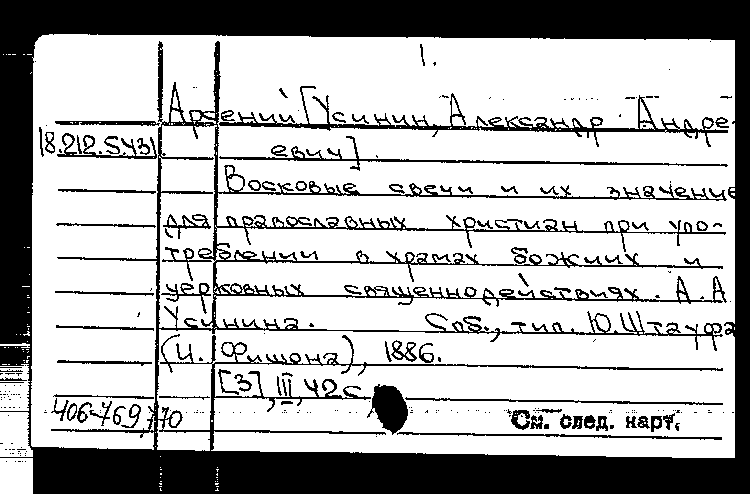 1.
Арсений [Усинин, Александр Андре-
18.212.5431
евич].
Восковые свечи и их значение
для православных христиан при упо-
треблении в храмах божиих и
церковных священнодействиях. А. А
Усинина. Спб., тип. Ю. Штауфа
(И. Фишона), 1886.
[3], III, 42 с.
406-769,770
См. след. карт.